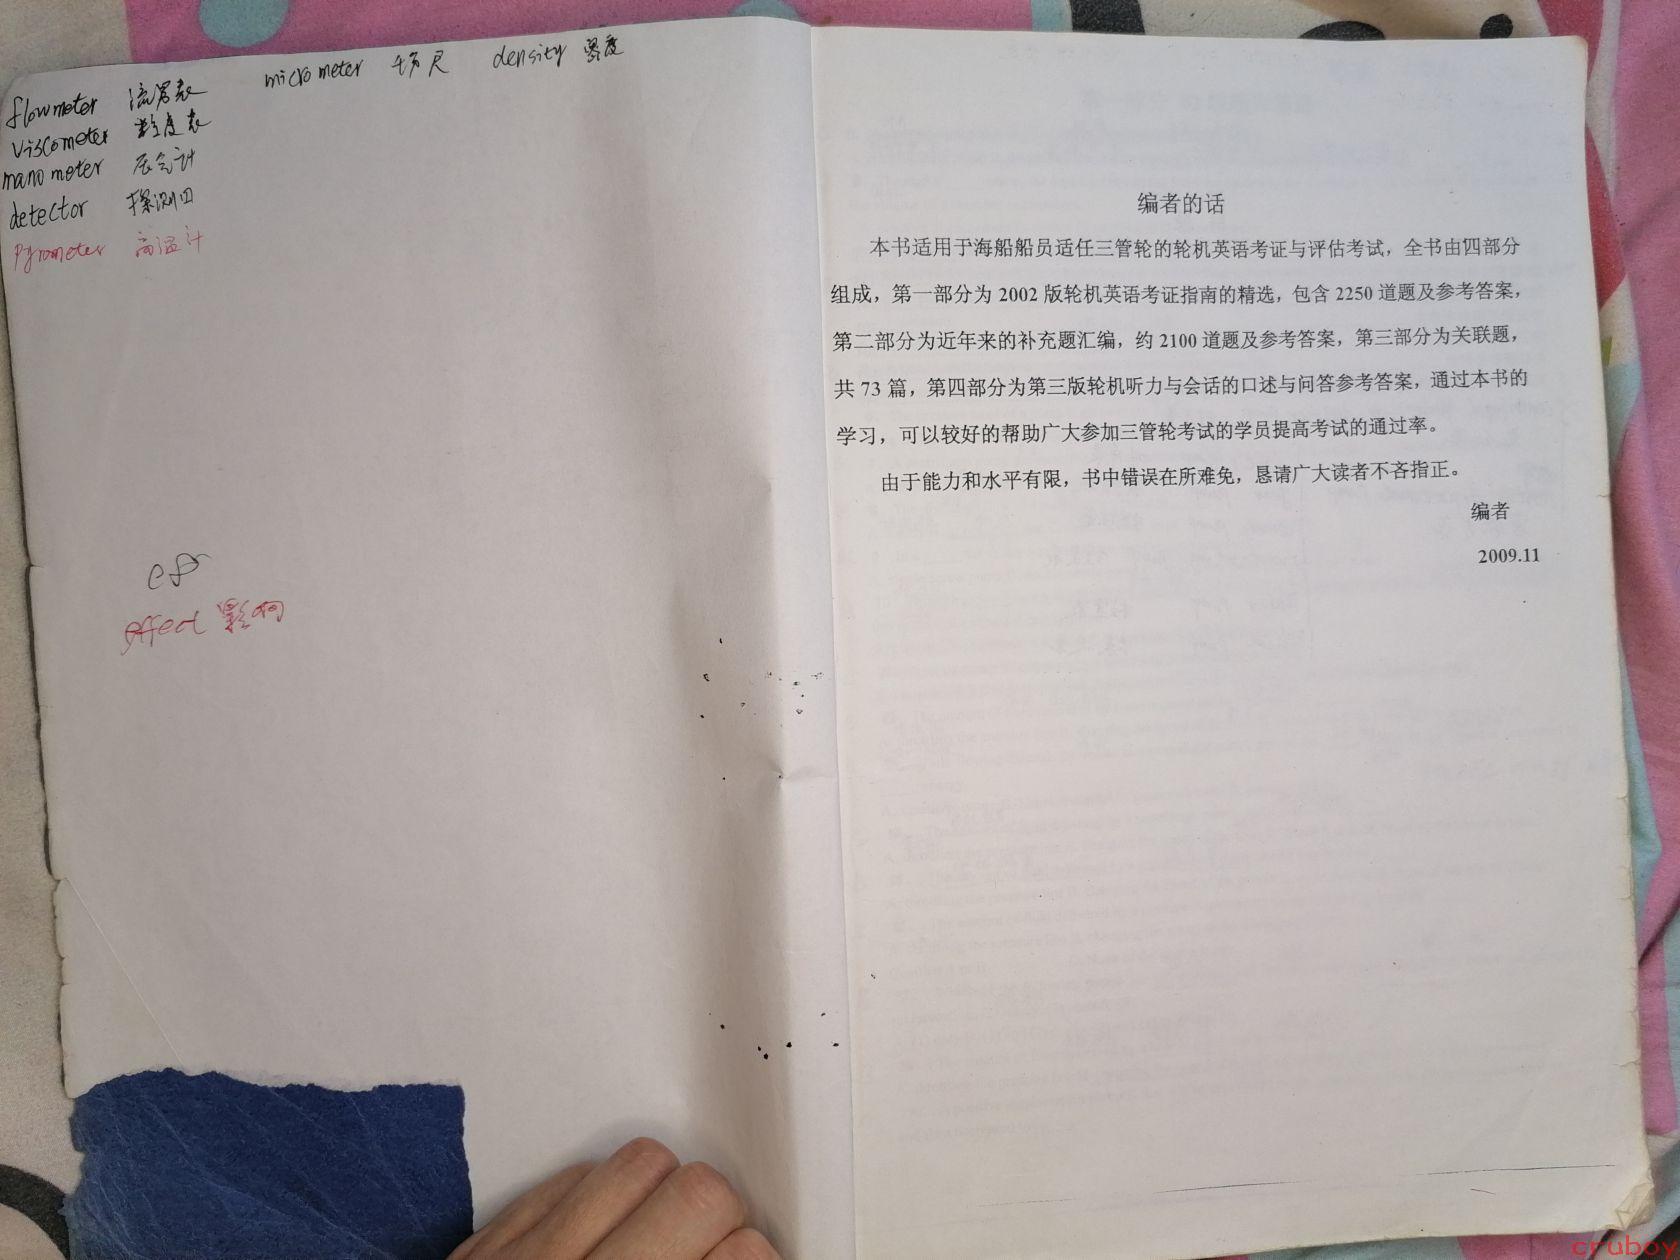 micrometer 千分尺 density 密度
flowmeter 流量表
viscometer 粘度表
manometer 压力计
detector 探测
pyrometer 高温计
eff
effect 影响
编者的话
本书适用于海船船员适任三管轮的轮机英语考证与评估考试，全书由四部分
组成，第一部分为 2002 版轮机英语考证指南的精选，包含 2250 道题及参考答案，
第二部分为近年来的补充题汇编，约 2100 道题及参考答案，第三部分为关联题，
共 73 篇，第四部分为第三版轮机听力与会话的口述与问答参考答案，通过本书的
学习，可以较好的帮助广大参加三管轮考试的学员提高考试的通过率。
由于能力和水平有限，书中错误在所难免，恳请广大读者不吝指正。
编者
2009.11
cruboy